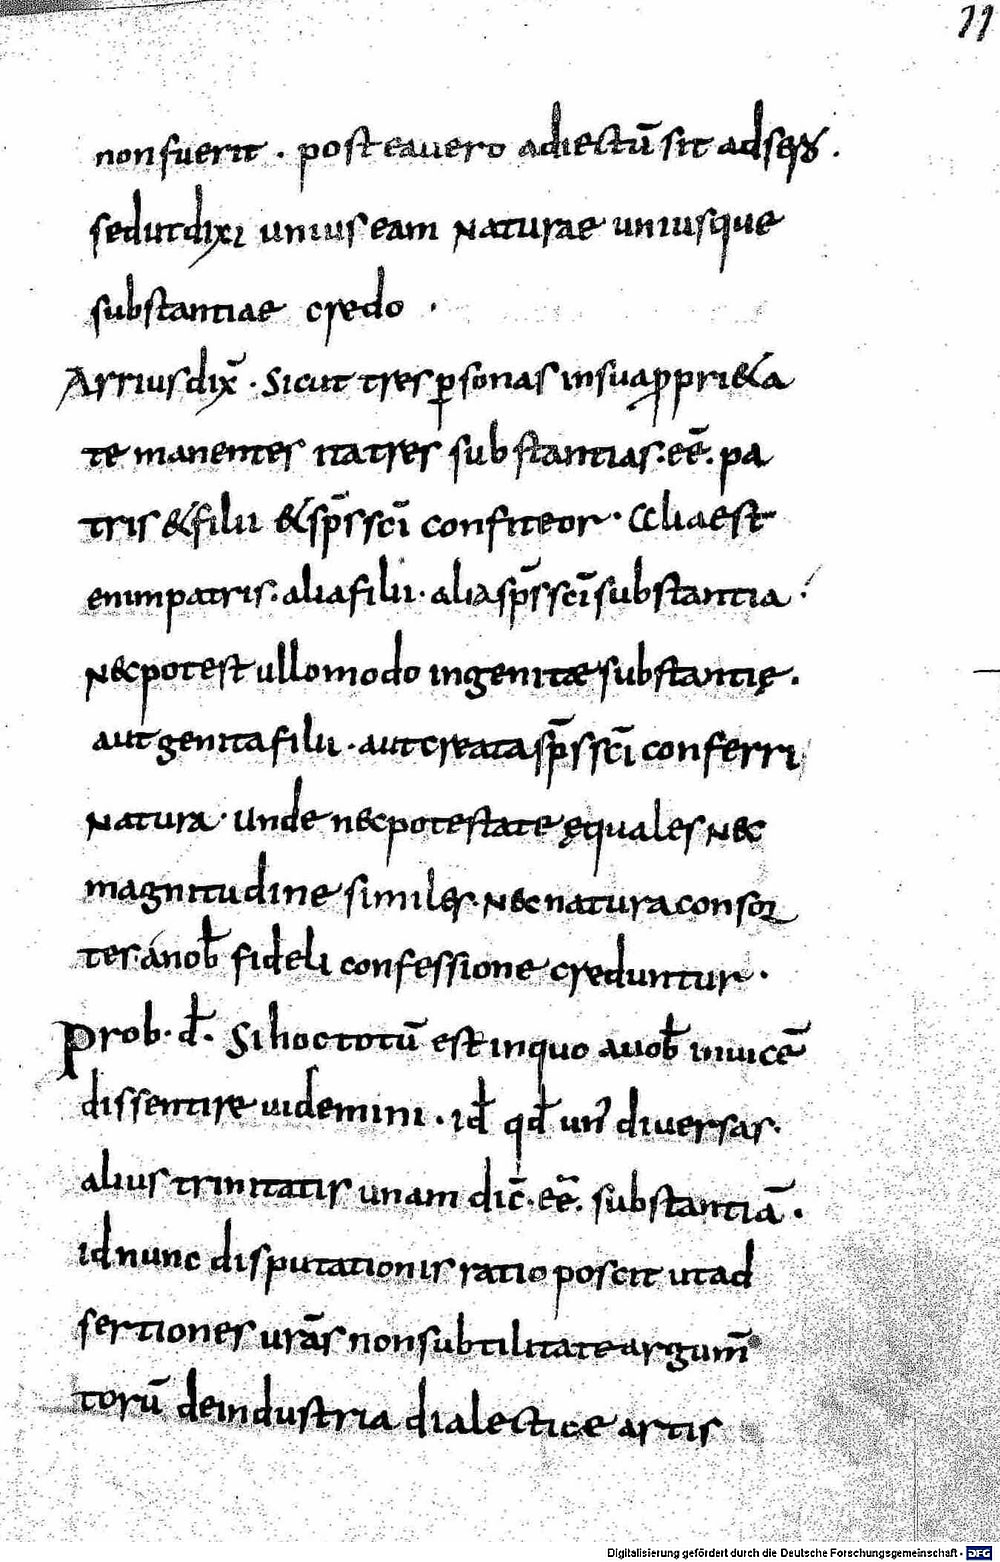 11
nonfuerit . posteauero adiectū sit adserꝩ .
sedutdixi uniuseam naturae uniusque
substantiae credo .
Arriusdix̄ . Sicut tres ꝑsonas insuaꝓpri&a
te manentes itatres substantias . eē . pa
tris &filii &sp̄s sc̄i confiteor . Aliaest
enimpatris . aliafilii . aliasp̄s sc̄i substantia .
N&cpotest ullomodo ingenitae substantię .
aut genitafilii . autcreatasp̄s sc̄i conferri
natura . unde n&cpotestate ęquales nec
magnitudine similes . n&cnatura consor
tes ánob̄ fideli confessione creduntur .
Prob . d̄ . Si hoctotū est inquo auob̄ inuicē
dissentire uidemini . id̄ qd̄ un̄ diuersas .
alius trinitatis unam dic̄ . eē . substantiā .
idnunc disputationis ratio poscit utad
sertiones ur̄as nonsubtilitate argum̄
torū deindustria dialectice artis
Digitalisierung gefördert durch die Deutsche Forschungsgemeinschaft - DFG